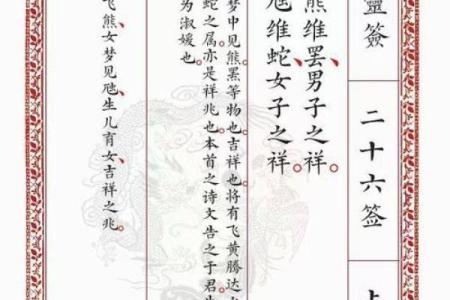 靈簽
二十六签
上
熊维罴、男子之祥。
虺维蛇、女子之祥。
梦中见熊罴等物也。吉祥也。将有飞黄腾达
蛇之属、亦是祥兆也。本首之诗文告之于君
为淑媛也。
飞熊、女梦见虺、生儿育女、吉祥之兆。